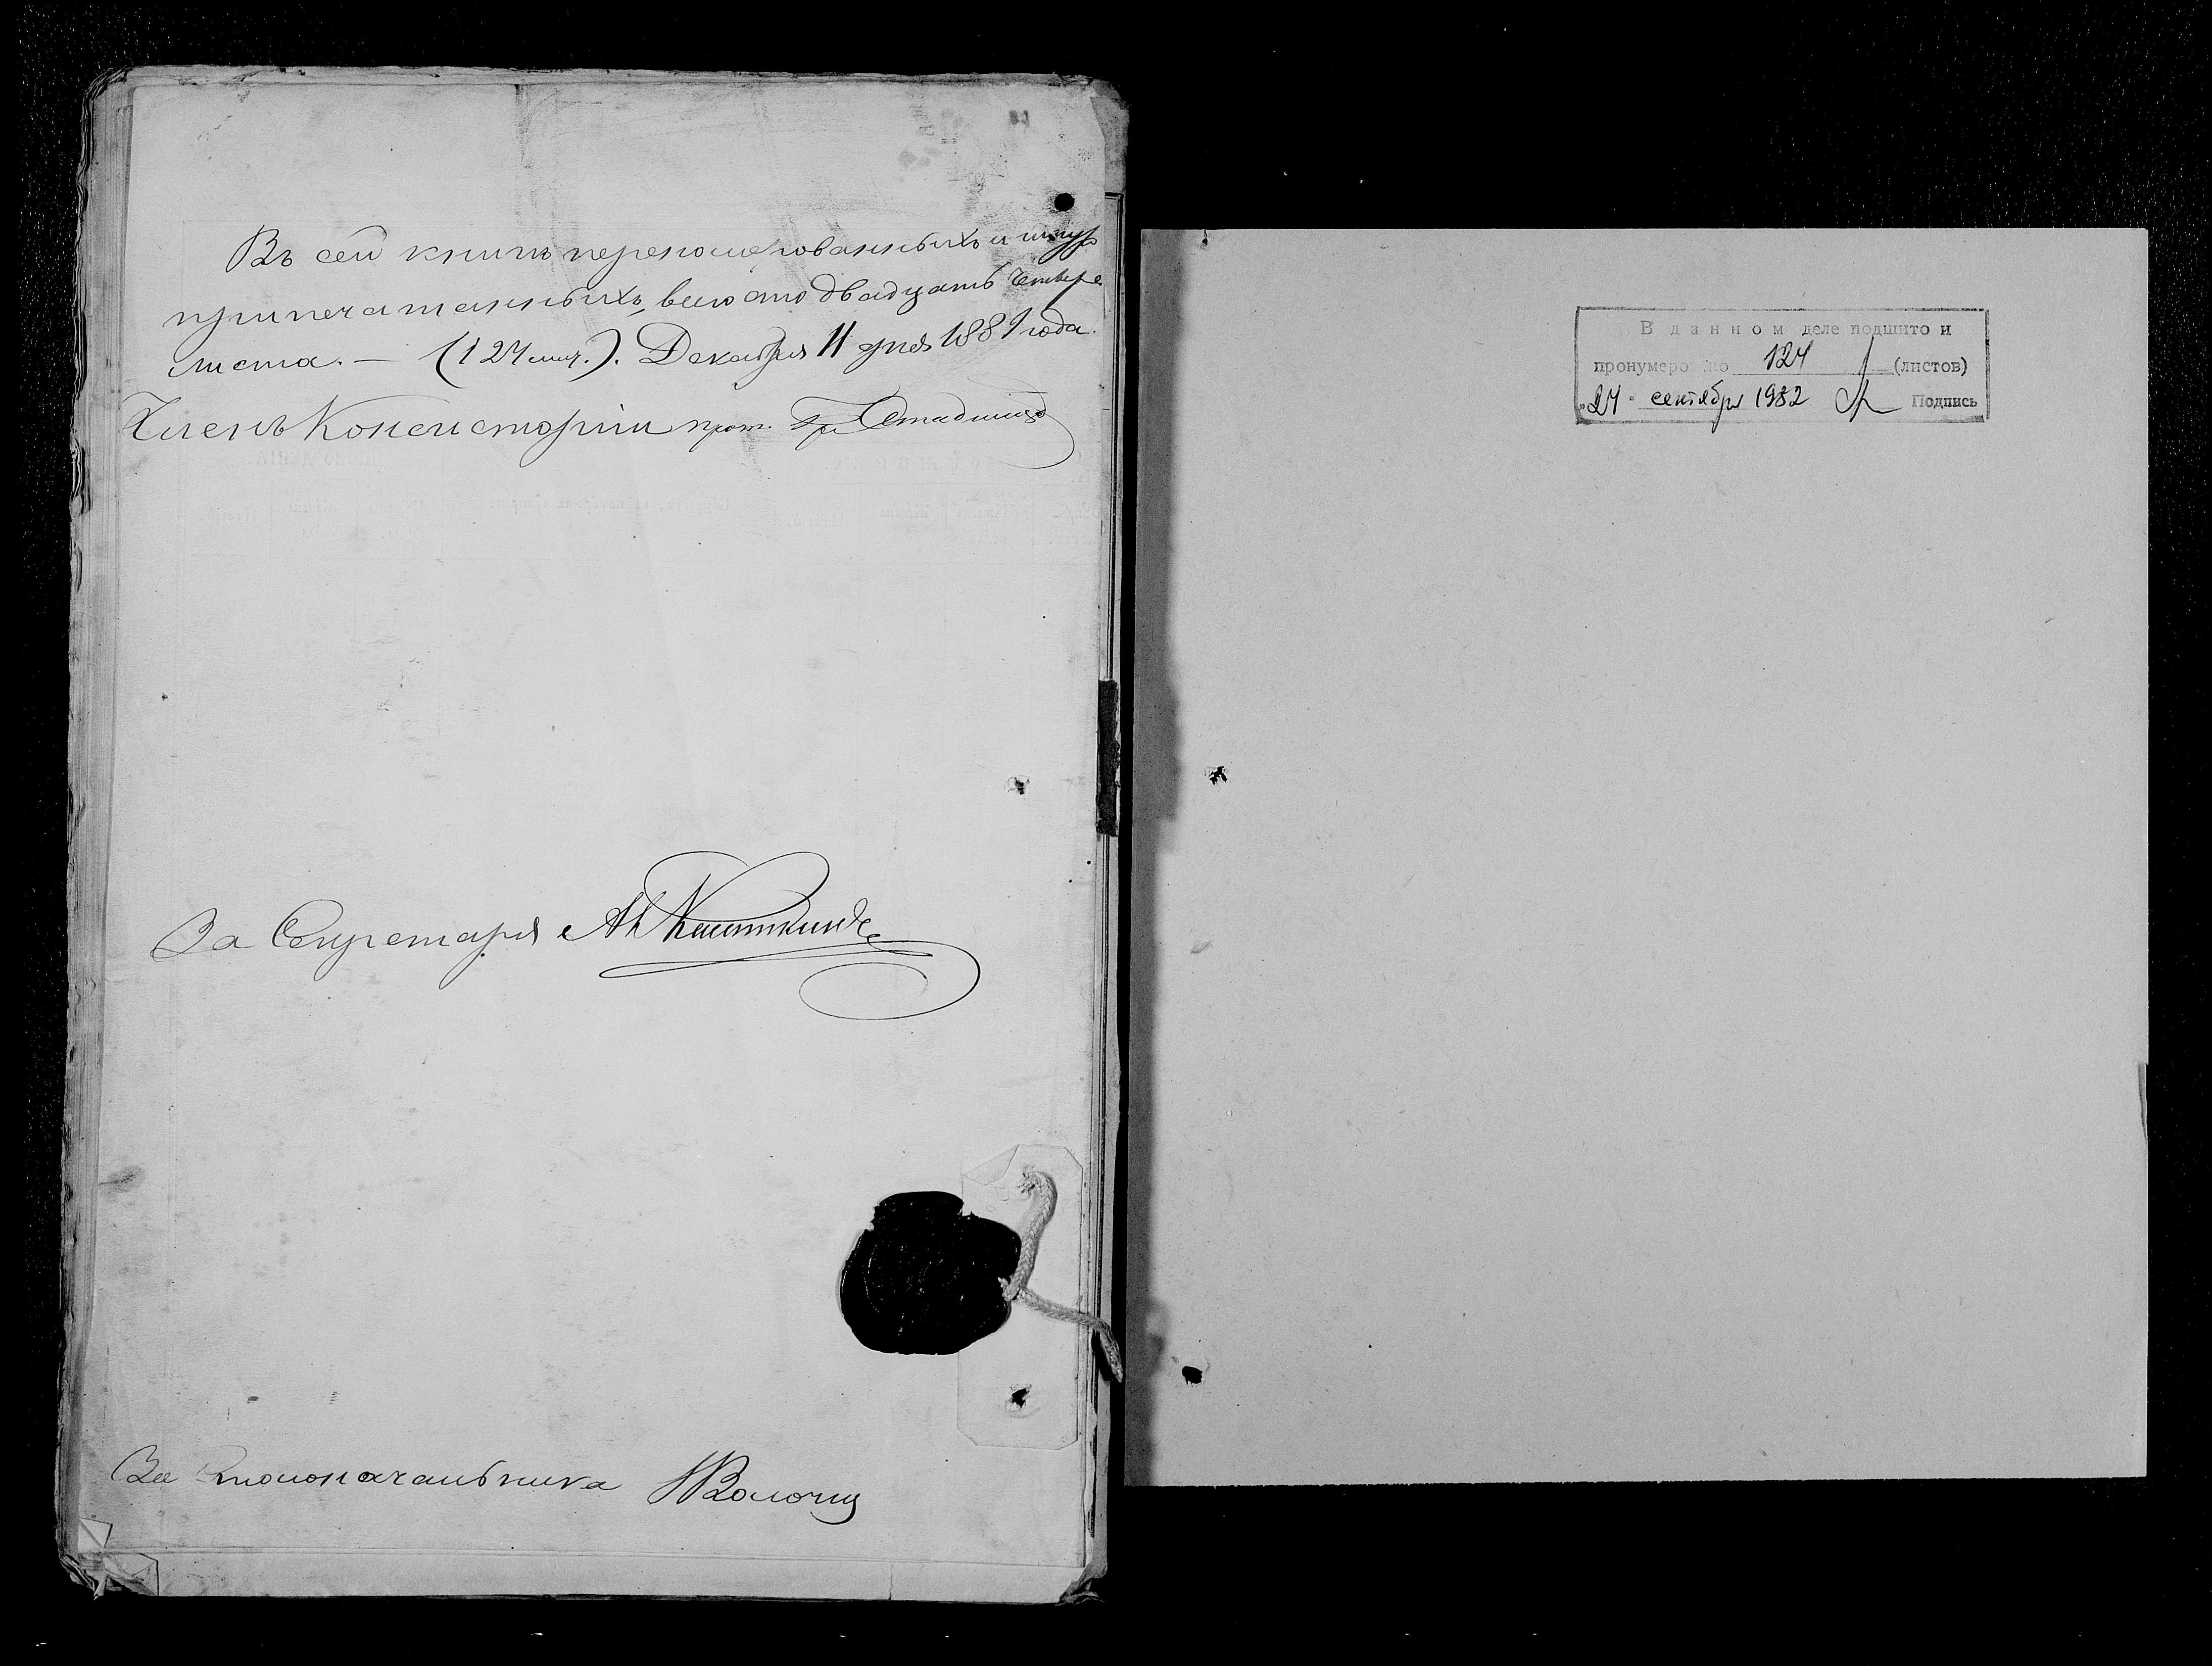 Въ сей книгѣ перенумерованныхъ и шнур
припечатанныхъ, всего сто двадцать четыре
листа. — (124 лист.). Декабря 11 дня 1881 года.
Членъ Консисторіи прот.
За Секретаря
За Столоначальника
В данном деле подшито и
пронумеро но 124 (листов)
"24" сентября 1982 Подпись